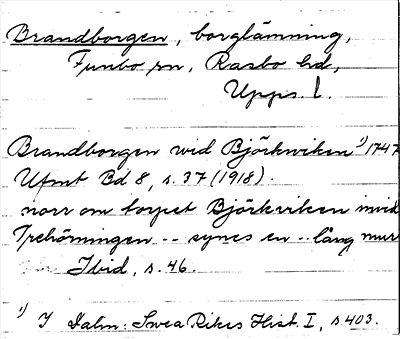 Brandborgen, borglämning,
Funbo sn, Rasbo hd,
Upps. l.
Brandborgen wid Björkwiken ¹) 1747
Ufmt Bd 8, s. 37 (1918).
norr om torpet Björkviken invid
Trehörningen -- synes en -- lång mur
Ibid, s. 46.
¹) I Dalin: Svea Rikes Hist. I, s 403.